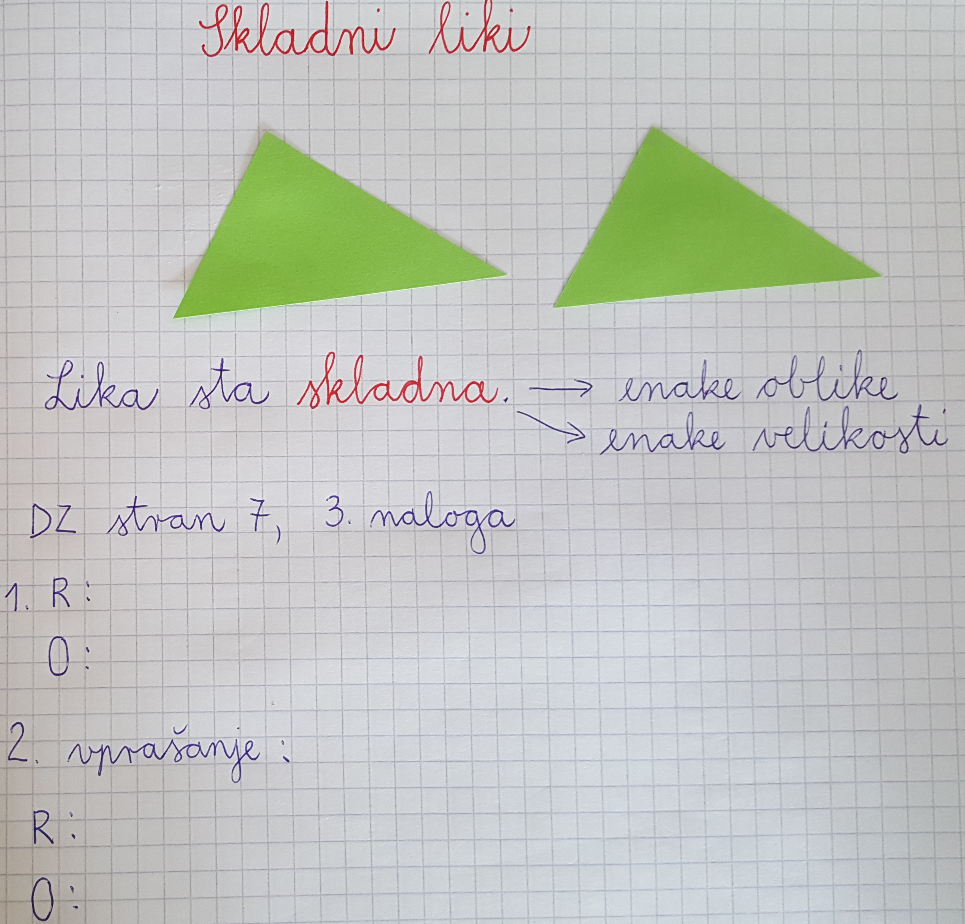 Skladni liki
Lika sta skladna. → enake oblike
→ enake velikosti
DZ stran 7, 3. naloga
1. R:
O:
2. vprašanje:
R:
O: